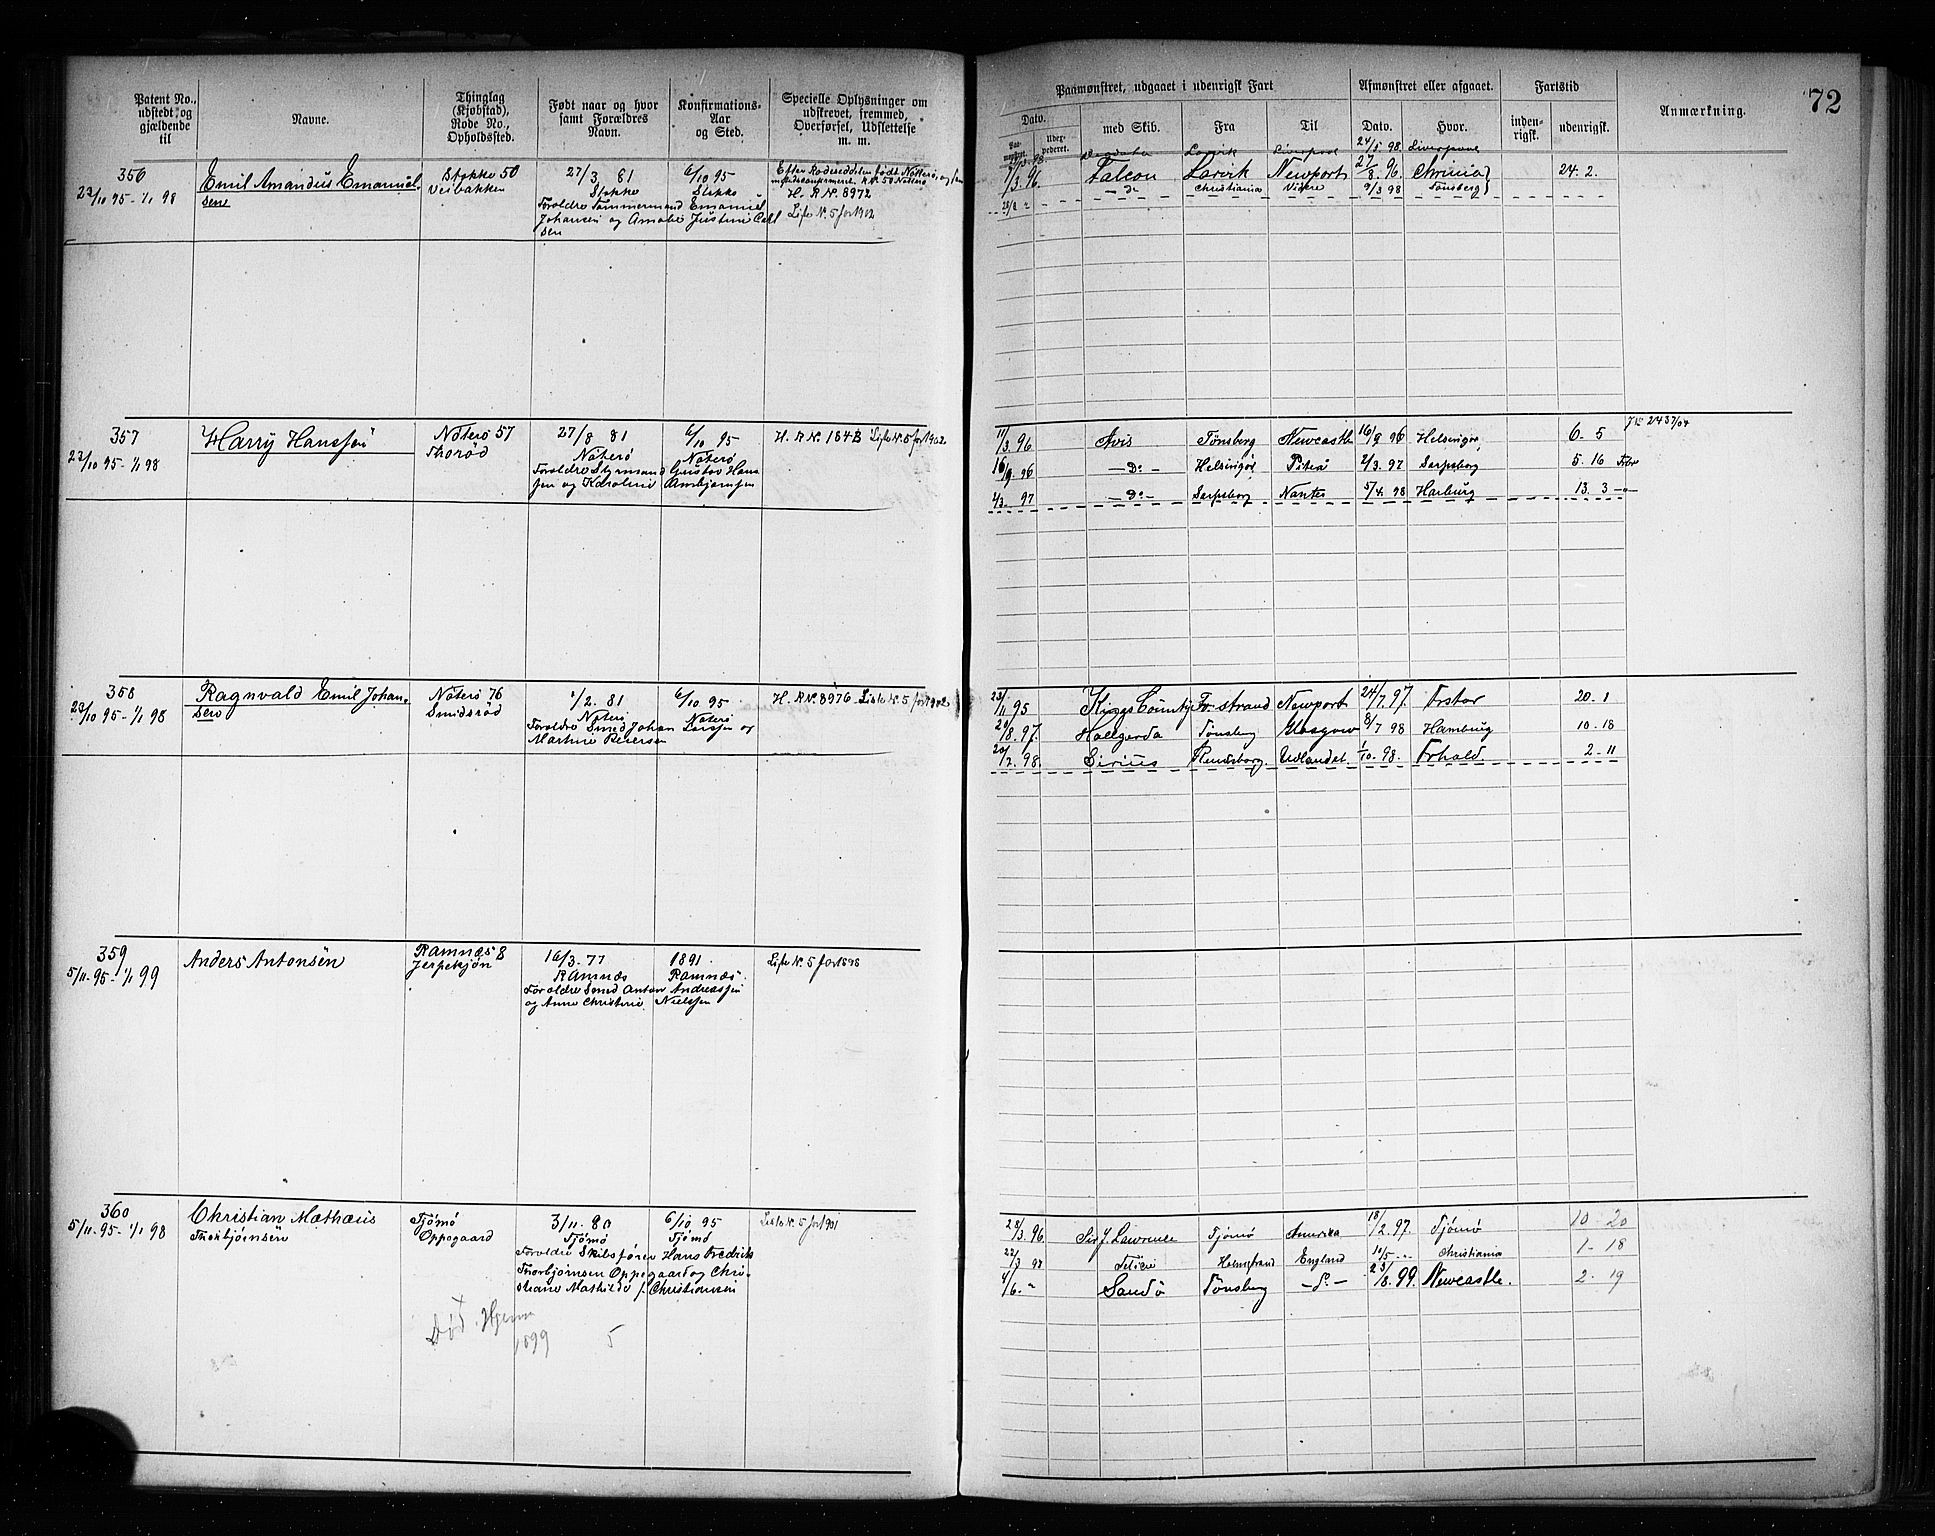 Patent No., udstedt og gjældende til
Navne.
Thinglag (Kjøbstad), Rode No., Opholdssted.
Født naar og hvor samt Forældres Navn.
Konfirmations-Aar og Sted.
Specielle Oplysninger om udskrevet, fremmed, Overførsel, Udslettelse m. m.
356
23/10 95 - 1/1 98
Emil Amandus Emanuel-
sen
Stokke 50
Veibakken
27/3 81
Stokke
6/10 95
Stokke
Forældre Tømmermand Emanuel
Johansen og Amalie Justine Carl
sen
H. R. N. 8972
Liste N. 5 for 1902
357
23/10 95 - 1/1 98
Harry Hanssen
Nøterø 57
Thorød
27/8 81
Nøterø
6/10 95
Nøterø
Forældre Styrmand Gustav Hans
sen og Karoline Arnbjørnsen
H. R. N. 184B Liste N. 5 for 1902.
358
23/10 95 - 1/1 98
Ragnvald Emil Johan-
sen
Nøterø 76
Smidsrød
1/2 81
Nøterø
6/10 95
Nøterø
Forældre Smed Johan Larssen og
Martine Petersen
H. R. N. 8976 Liste N. 5 for 1902
359
5/11 - 95 - 1/1 99
Anders Antonsen
Ramnæs 8
Jerpekjøn
16/3 - 77
Ramnæs
1891
Ramnæs
Forældre Smed Anton Andreassen
og Anne Christine Nielsen
Liste N. 5 for 1898
360
5/11 - 95 - 1/1 98
Christian Mathæus
Thorbjørnsen
Tjømø
Oppegaard
3/11 - 80
Tjømø
6/10 95
Tjømø
Forældre Skibsfører Hans Fredrik
Thorbjørnsen Oppegaard og Chri-
stiane Mathilde f. Christiansen
Liste N. 5 for 1901
Død. Hjem
1899 5
72
Paamønstret, udgaaet i udenrigsk Fart
Afmønstret eller afgaaet.
Fartstid
Anmærkning.
Dato.
med Skib.
Fra
Til
Dato.
Hvor.
inden-rigsk.
udenrigsk.
Larvik Liverpool 24/5 98 Liverpool
7/3 96 Falcon Larvik Newport 27/8 96 24. 2.
- Do - Christiania 9/3 98 Tønsberg
11/3 96 Avis Tønsberg Newcastle 16/9 96 Helsingør 6. 5
16/9 96 - Do - Helsingør Piteå 2/3 97 Sarpsborg 5. 16
2/3 97 - Do - Sarpsborg Nantes 5/4 98 Harburg 13. 3
23/11 95 Kings County Fr.strand Newport 24/7 97. 20. 1
29/8 97. Hallgerda Tønsberg Glasgow 8/7 98 Hamburg 10 - 18
20/7 98. Sirius Rendsborg. Udlandet. 1/10 98. Forhold 2 - 11
28/3 96 Sir J. Lawrence Tjømø Amerika 18/2 97. Tjømø 10 - 20
22/3 98 Holmstrand England 10/5 - Christiania 1 - 18
4/6 " Sandø Tønsberg - Do - 23/8 99. Newcastle. 2 - 19